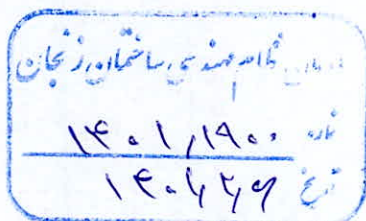 سازمان نظام مهندسی ساختمان زنجان
شماره ۱۴۰۱،۱۹۰۰
تاریخ